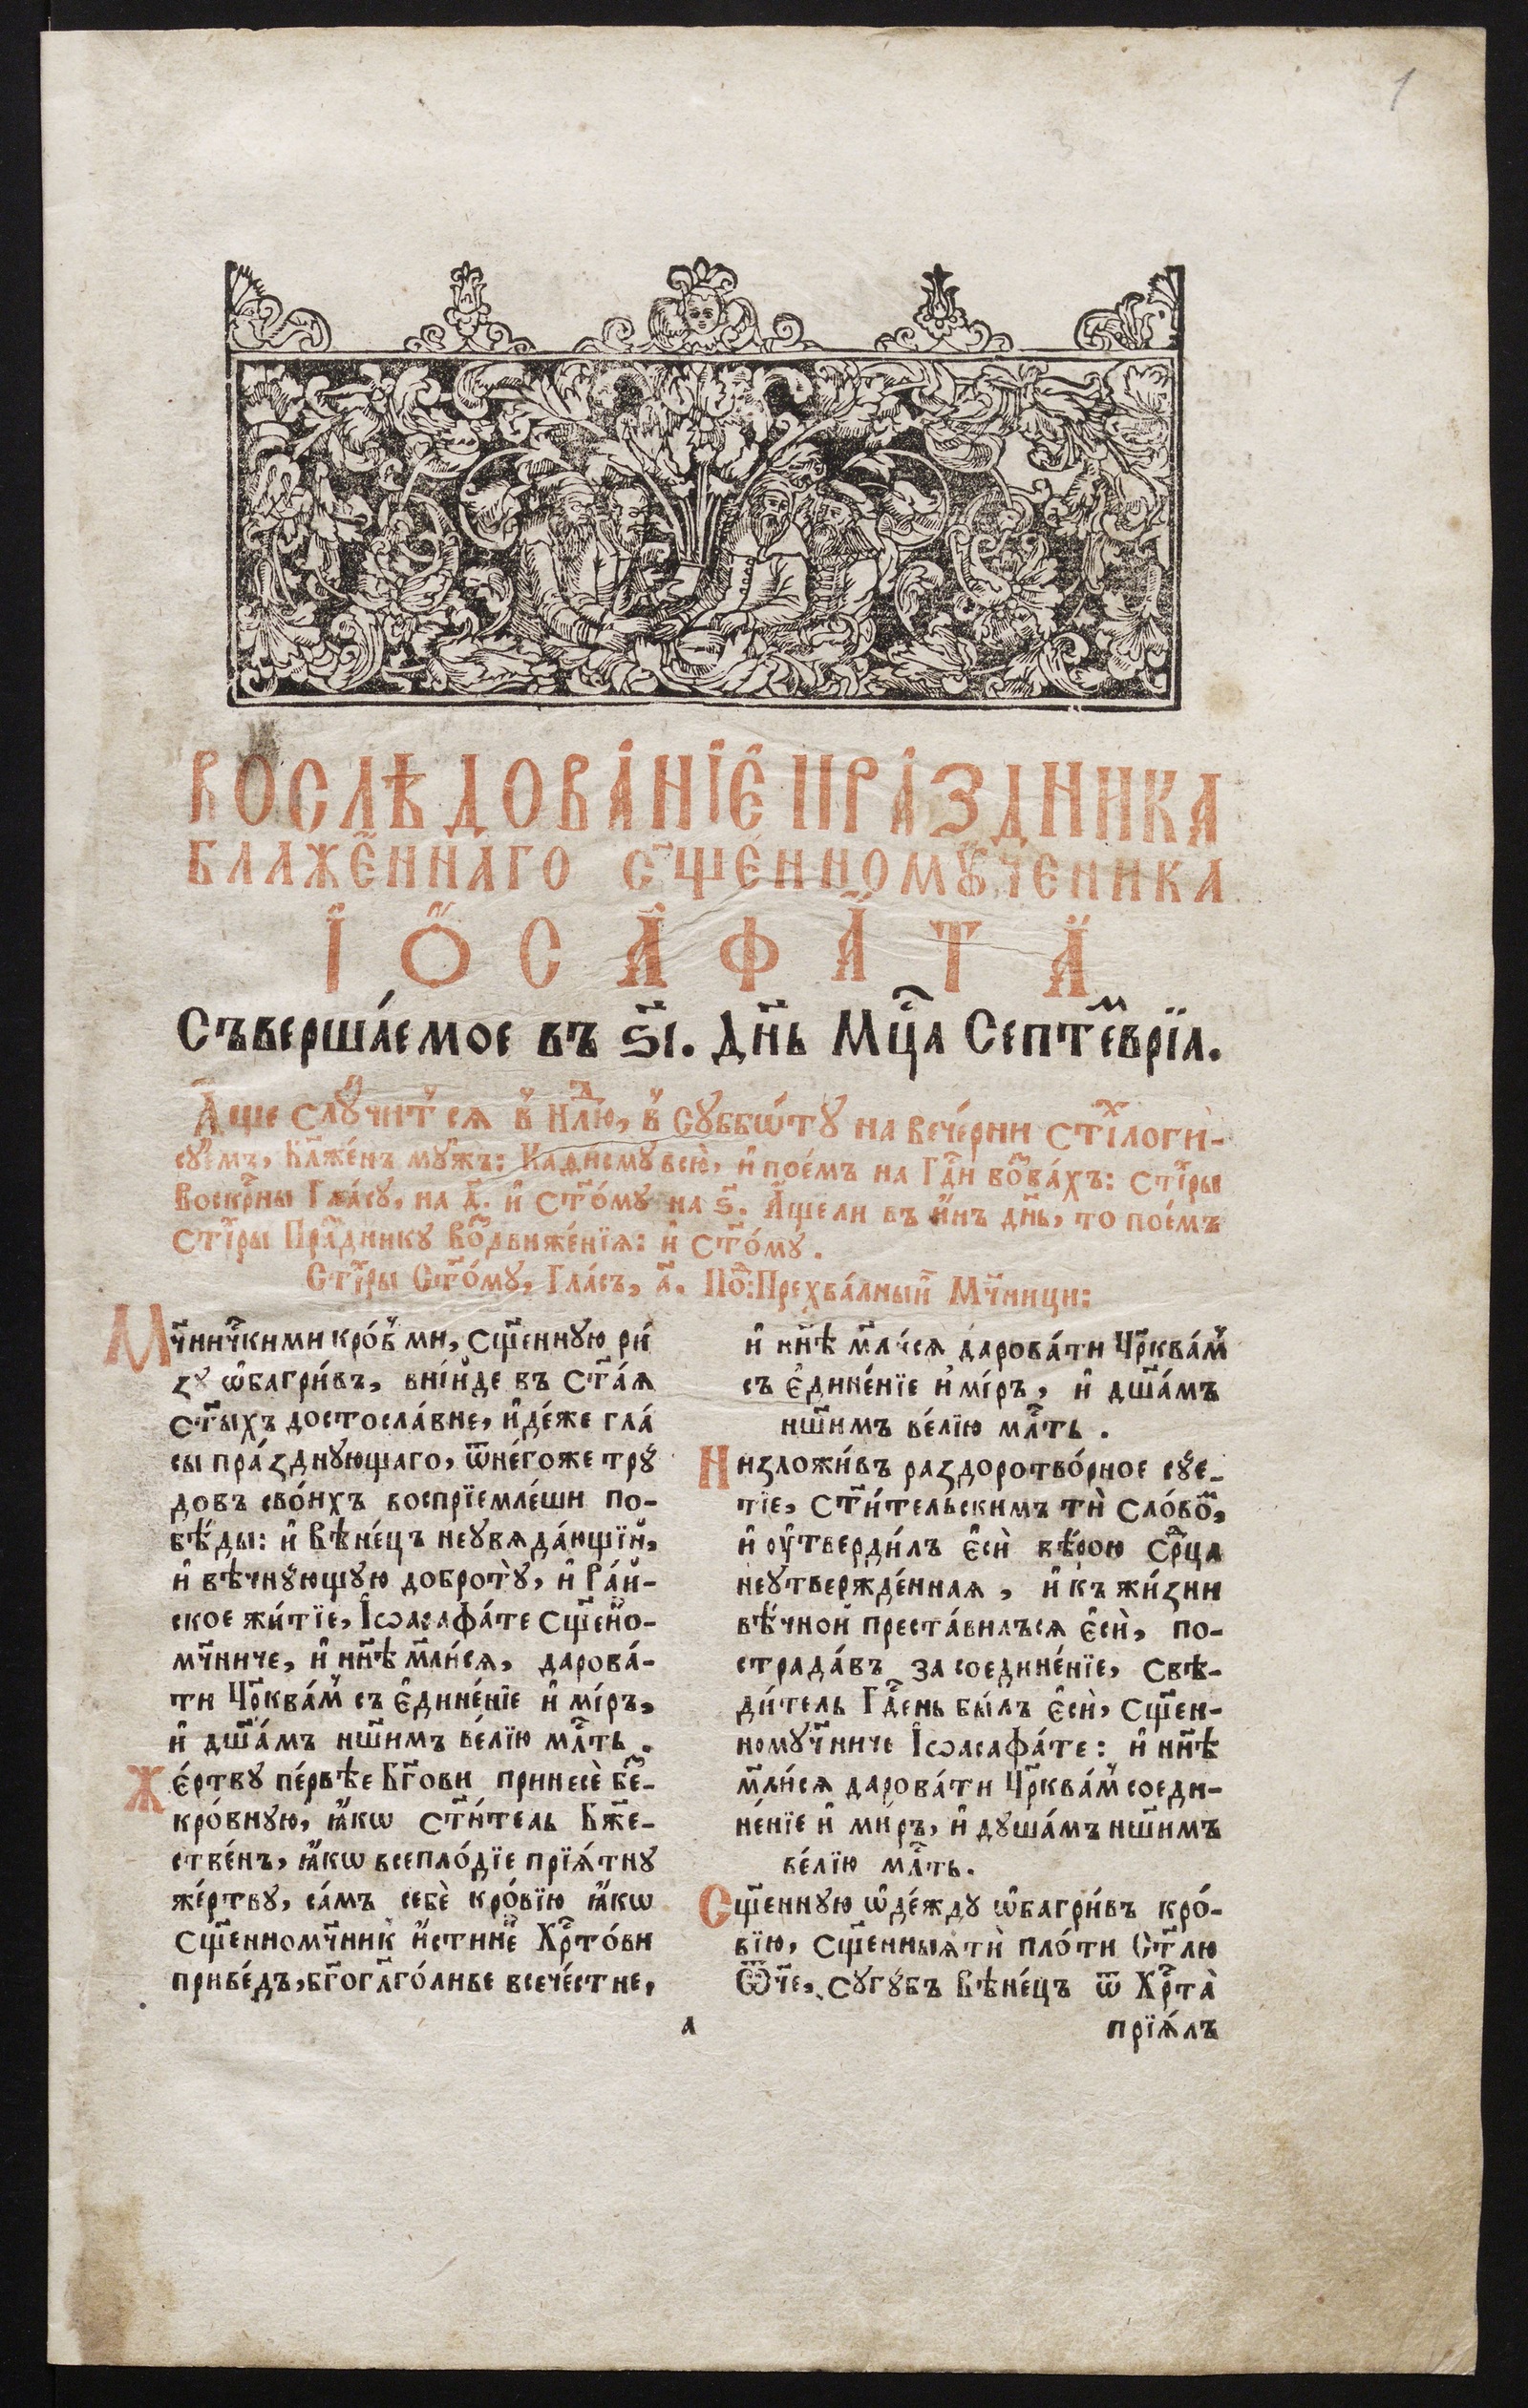 1
ВОСЛѢДОВА́НЇЕ ПРА́ЗДНИКА
БЛАЖЕ́ННАГО С҃ЩЕ́ННОМꙊ́ЧЕНИКА
І Ѻ С А Ф А Т А
Съверша́емое въ ѕ҃і. Дн҃ь Мц҃а Септе́мврїа.
А҆́ще слꙋ́читсѧ в̾ Нл҃ю, в̾ Сꙋббѡ́тꙋ на Вече́рни стїхлоги̾-
сꙋ́емъ, Бл҃же́нъ мꙋ́жъ: Каѳі́смꙋ всю̀, и҆ пое́мъ на Гд҃и во҆зва́хъ: сті҃ры
Воскр҃ны Гла́сꙋ, на д҃. и҆ Ст҃о́мꙋ на ѕ҃. А҆́щели въ и҆́нъ дн҃ь, то пое́мъ
сті҃ры Пра҃здникꙋ Во҃здвиже́нїѧ: и҆ ст҃о́мꙋ.
Сті҃ры Ст҃о́мꙋ, Гла́съ, а҃. По҃д: Прехва́лныи҆ Мч҃ници:
Мч҃ни́ч҃кими кро́в̾ми, сщ҃еннꙋю ри́
зꙋ ѡ҆багри́въ, вни́йде въ ст҃а́ѧ
ст҃ыхъ достосла́вне, и҆де́же гла́
сы пра́зднꙋющаго, ѿне́гоже трꙋ
до́въ свои́хъ воспрїемле́ши по-
бѣ́ды: и҆ Вѣне́цъ неꙋвѧда́ющїй,
и҆ вѣ́чнꙋ́ющꙋю добротꙋ̀, и҆ Ра́й-
ское жи́тїе, І҆ѡасафа́те сщ҃енно-
мч҃ниче, и҆ нн҃ѣ мл҃и́сѧ, дарова́-
ти Цр҃ква́м̾ съ є҆дине́нїе и҆ ми́ръ,
и҆ дш҃а́мъ нш҃имъ ве́лїю мл҃ть.
Же́ртвꙋ пе́рвѣе Бг҃ови принесѐ бе҃з-
кро́внꙋю, ꙗ҆́кѡ ст҃и́тель Бж҃е-
стве́нъ, ꙗ҆́кѡ всепло́дїе прїѧ́тнꙋ
же́ртвꙋ, са́мъ себѐ кро́вїю ꙗ҆́кѡ
Сщ҃енномч҃ник̾ и҆́стинне Хр҃то́ви
приве́дъ, бг҃огл҃го́ливе всече́стне,
и҆ нн҃ѣ мл҃ѧ́сѧ дарова́ти Цр҃ква́м̾
съ є҆дине́нїе и҆ ми́ръ, и҆ дш҃а́мъ
нш҃имъ ве́лїю мл҃ть.
Низложи́въ раздоротво́рное сꙋе-
тїе, ст҃и́тельскимъ ти̾ сло́во҃м,
и҆ ᲂу҆тверди́лъ є҆сѝ вѣ́рою ср҃ца
неꙋтвержде́нная, и҆ къ жи́зни
вѣ́чной преста́вилъсѧ є҆сѝ, по-
страда́въ за соедине́нїе, свѣ-
ди́тель Гд҃ень бы́лъ є҆сѝ, сщ҃ен-
номꙋч҃ниче І҆ѡасафа́те: и҆ нн҃ѣ
мл҃и́сѧ дарова́ти Цр҃ква́м̾ соеди-
не́нїе и҆ ми́ръ, и҆ дꙋша́мъ нш҃имъ
ве́лїю мл҃ть.
Сщ҃еннꙋю ѡ҆де́ждꙋ ѡ҆багри́въ кро́-
вїю, сщ҃енныѧти̾ пло́ти Ст҃лю
Ѿч҃е, сꙋгꙋ́бъ Вѣне́цъ ѿ Хр҃та̀
а
прїѧ́лъ